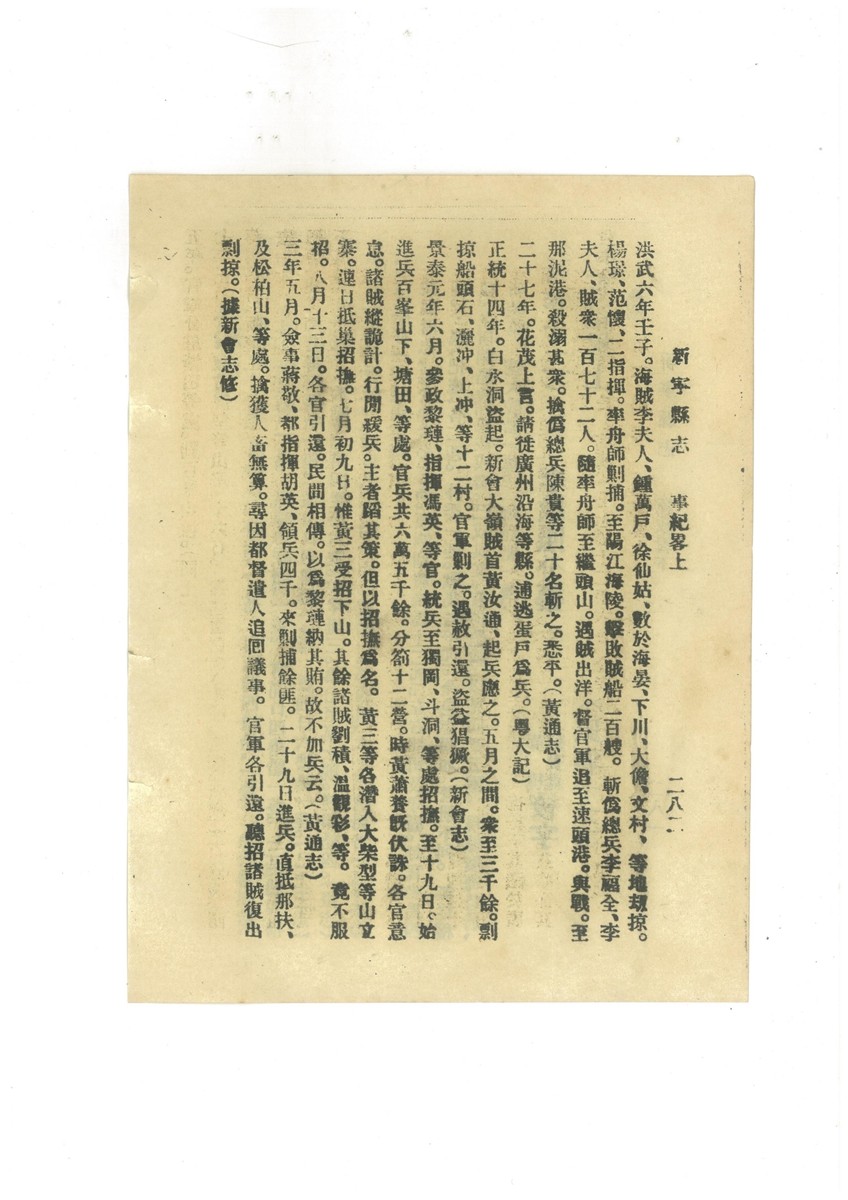 新寧縣志　事紀畧上　二八
洪武六年壬子。海賊李夫人、鍾萬戶、徐仙姑、數於海晏、下川、大儋、文村、等地刼掠。
楊璟、范懷、二指揮。率舟師剿捕。至陽江海陵。擊敗賊船二百艘。斬僞總兵李福全、李
夫人、賊衆一百七十二人。隨率舟師至纜頭山。遇賊出洋。督官軍追至速頭港。與戰。至
那泥港。殺溺甚衆。擒僞總兵陳貴等二十名斬之。悉平。（黃通志）
二十七年。花茂上言。請徙廣州沿海等縣。逋逃蛋戶爲兵。（粵大記）
正統十四年。白水洞盜起。新會大嶺賊首黃汝通、起兵應之。五月之間。衆至三千餘。剽
掠船頭石、灑冲、上冲、等十二村。官軍剿之。遇赦引還。盜益猖獗。（新會志）
景泰元年六月。參政黎璉、指揮馮英、等官。統兵至獨岡、斗洞、等處招撫。至十九日、始
進兵百峯山下、塘田、等處。官兵共六萬五千餘。分箚十二營。時黃蕭養旣伏誅。各官意
怠。諸賊縱詭計。行閒緩兵。主者蹈其策。但以招撫爲名。黃三等各潛入大柴型等山立
寨。連日抵巢招撫。七月初九日。惟黃三受招下山。其餘諸賊劉積、溫觀彩、等。竟不服
招。八月十三日。各官引還。民間相傳。以爲黎璉納其賄。故不加兵云。（黃通志）
三年五月。僉事蔣敬、都指揮胡英、領兵四千。來剿捕餘匪。二十九日進兵。直抵那扶、
及松柏山、等處。擒獲人畜無算。尋因都督遣人追囘議事。官軍各引還。聽招諸賊復出
剽掠。（據新會志修）